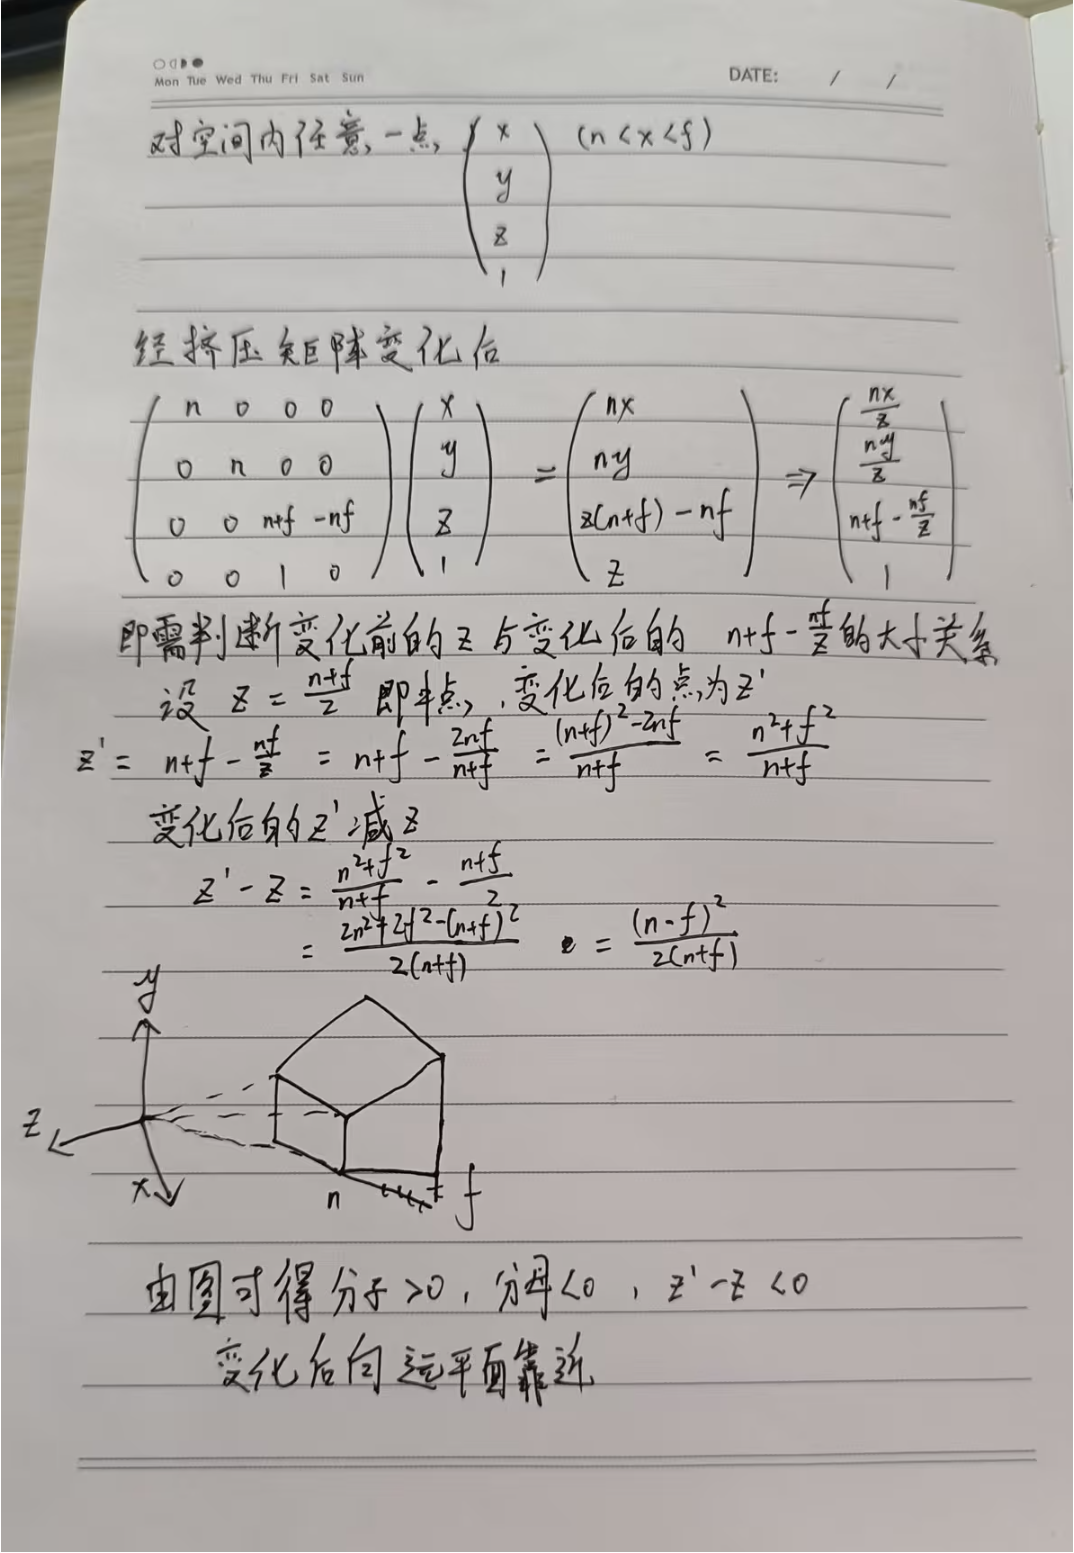 Mon Tue Wed Thu Fri Sat Sun
DATE: / /
对空间内任意一点 (x y z 1) (n<x<f)
经挤压矩阵变化后
(n 0 0 0) (x) = (nx) ⇒ (nx/z)
(0 n 0 0) (y) (ny) (ny/z)
(0 0 n+f -nf) (z) (z(n+f)-nf) (n+f-nf/z)
(0 0 1 0) (1) (z) (1)
即需判断变化前的z与变化后的 n+f-nf/z的大小关系
设 z = (n+f)/2 即中点, 变化后的点为z'
z' = n+f - nf/z = n+f - 2nf/(n+f) = ((n+f)²-2nf)/(n+f) = (n²+f²)/(n+f)
变化后的z'减z
z'-z = (n²+f²)/(n+f) - (n+f)/2
= (2n²+2f²-(n+f)²)/(2(n+f)) = (n-f)²/(2(n+f))
y
z
x
n
f
由图可得分子>0, 分母<0, z'-z<0
变化后向远平面靠近